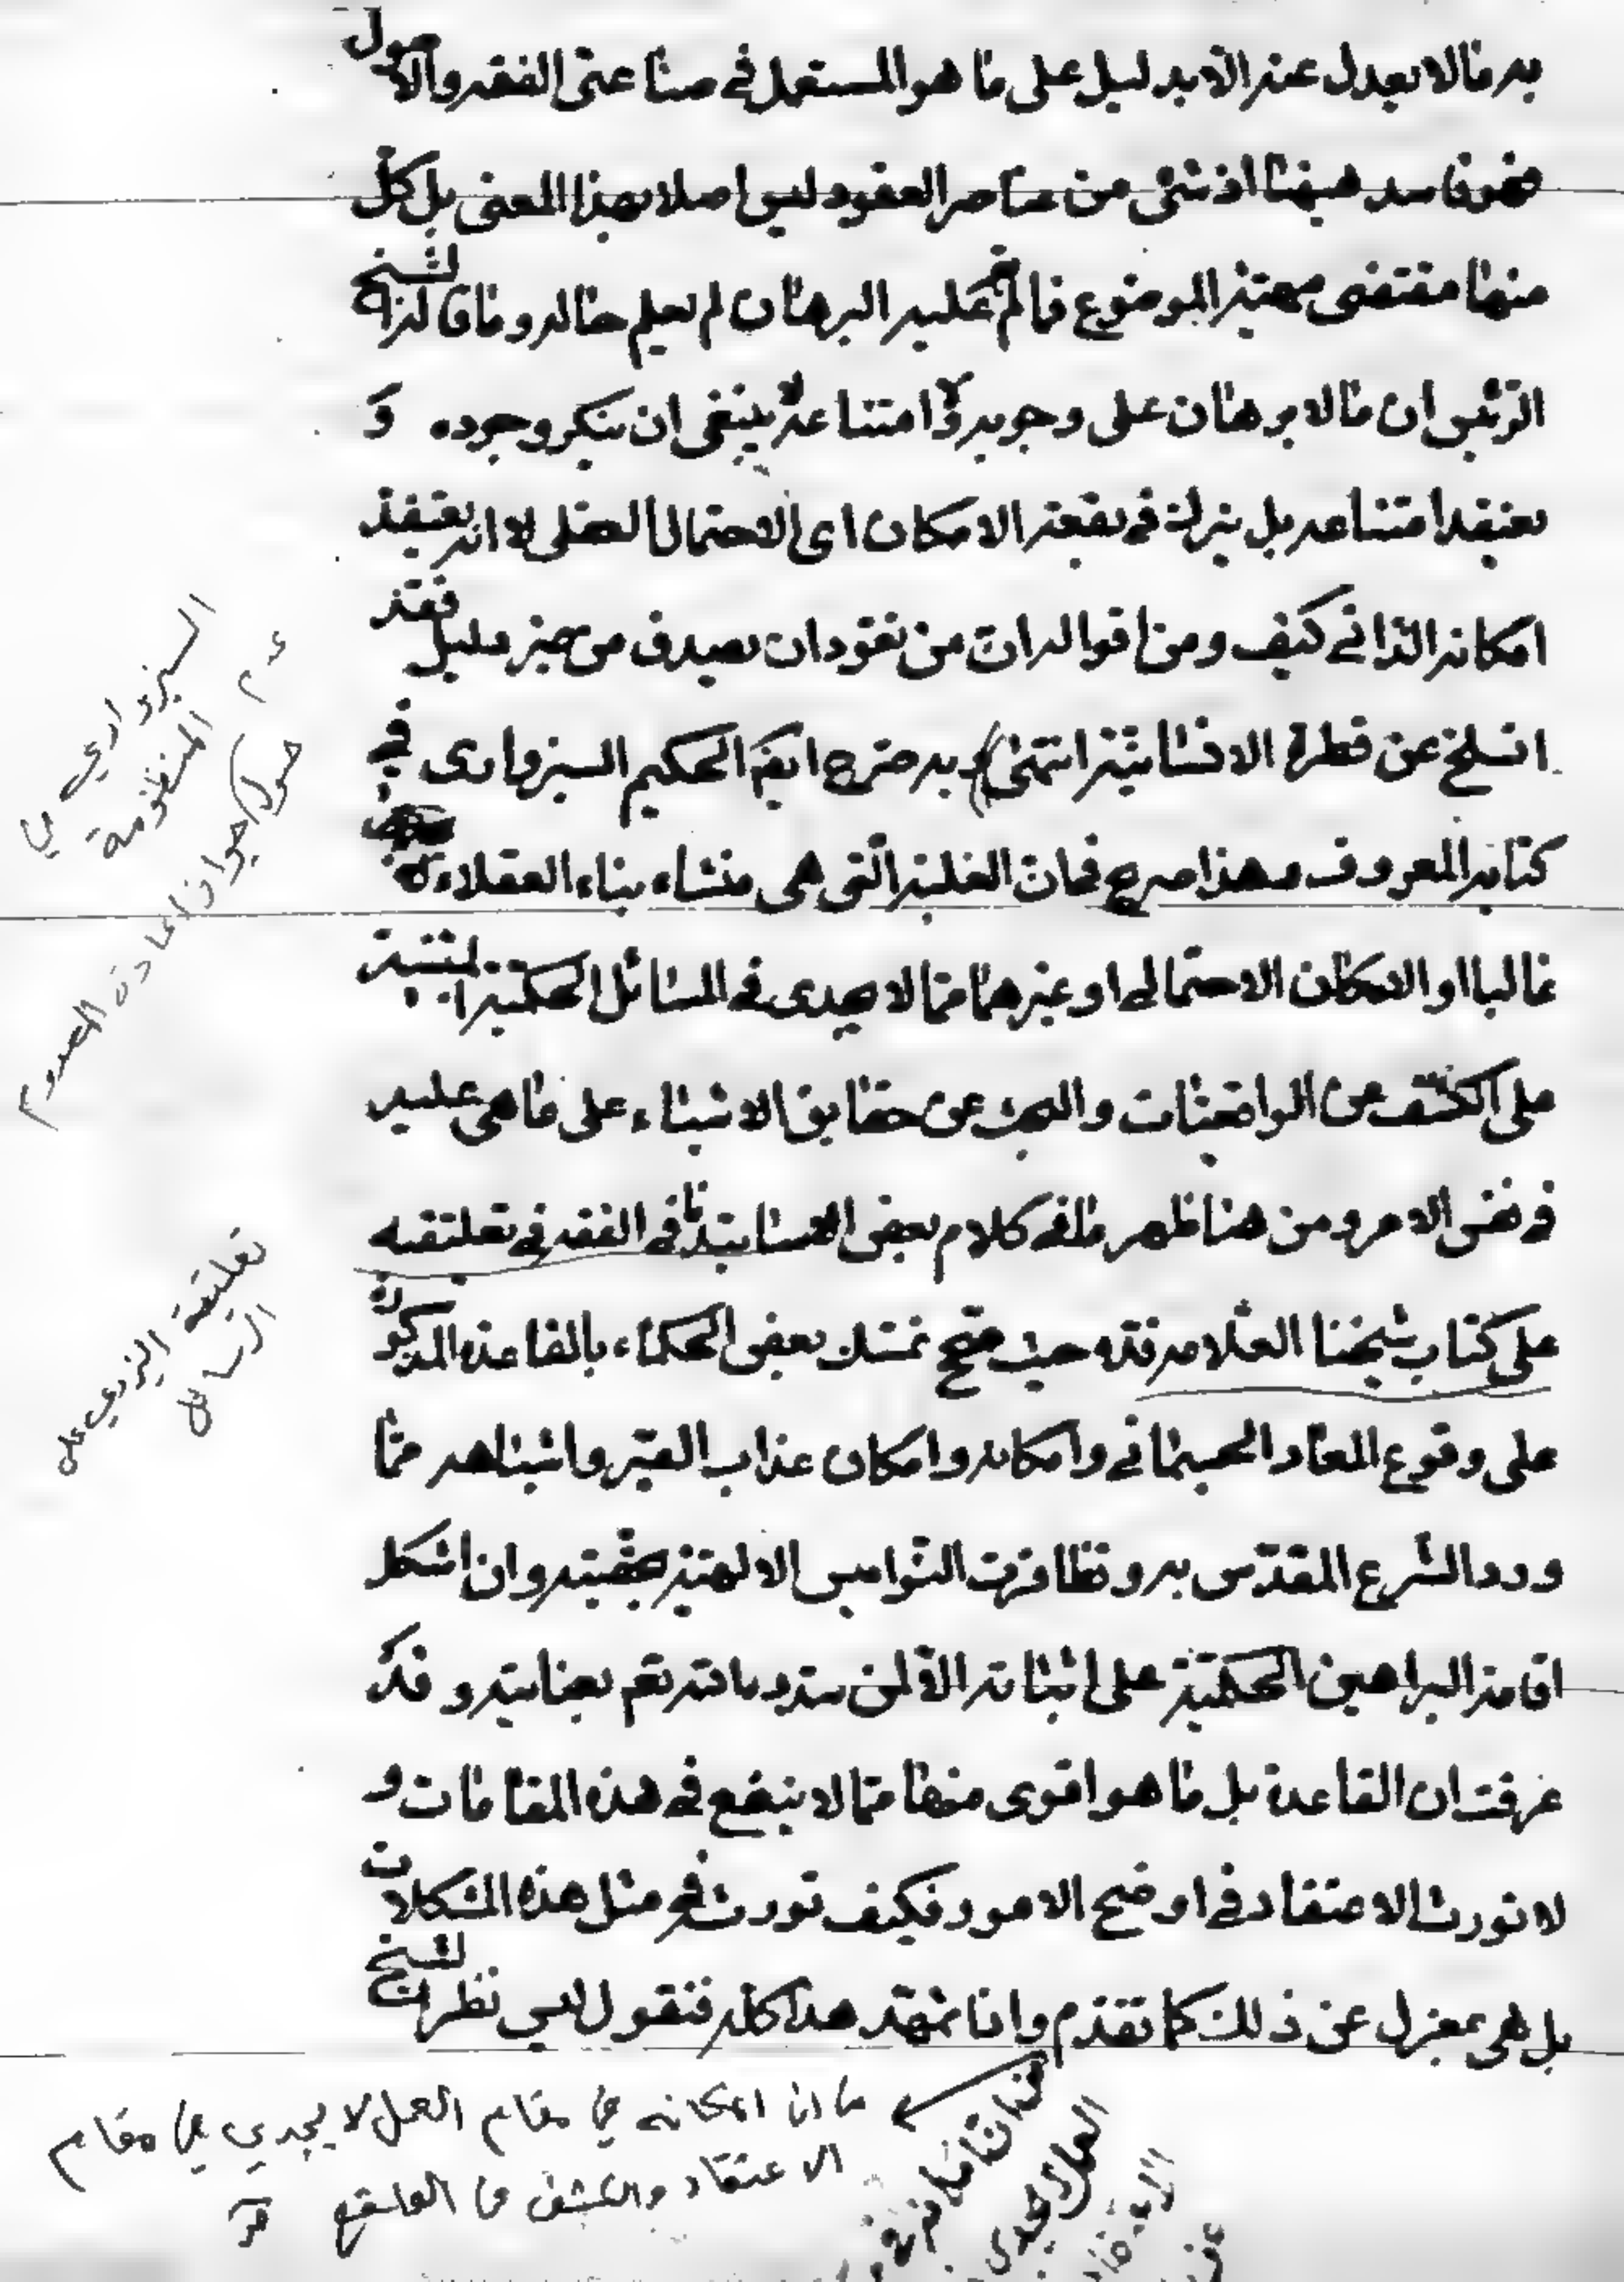 به ما لا يعدل عنه الا بدليل على ما هو المستعمل فى صناعتى الفقه والاصول
فهو فاسد هيهنا اذ شئ من عناصر العقود ليس اصلا بهذا المعنى بل كل
منها مقتضى مهية الموضوع فما لم يقم عليه البرهان لم يعلم حاله وما قاله الشيخ
الرئيس ان ما لا برهان على وجوبه ولا امتناعه لا ينبغى ان ينكر وجوده و
يعتقد امتناعه بل يترك فى بقعة الامكان اى الاحتمال العقلى لا انه يعتقد
امكانه الذاتى كيف ومن اقواله ان من تعود ان يصدق من غير دليل فقد
انسلخ عن فطرة الانسانية انتهى) به صرح ايضا الحكيم السبزوارى فى
كتابه المعروف وهذا صريح فى ان الغلبة التى هى منشاء بناء العقلاء
غالبا او الامكان الاحتمالى او غيرهما مما لا يجدى فى المسائل الحكمية المبتنية
على الكشف عن الواقعيات والبحث عن حقايق الاشياء على ما هى عليه
فى نفس الامر ومن هنا ظهر ما فى كلام بعض اساتيدنا فى الفقه فى تعليقته
على كتاب شيخنا العلامة قده حيث صحح تمسك بعض الحكماء بالقاعدة المذكورة
على وقوع المعاد الجسمانى وامكانه وامكان عذاب القبر واشباهه مما
ورد الشرع المقدس به وتظافرت النواميس الالهية بحقيته وان اشكل
اقامة البراهين الحكمية على اثباته الا لمن سدده الله تعم بعنايته وقد
عرفت ان القاعدة بل ما هو اقوى منها مما لا ينفع فى هذه المقامات و
لا تورث الاعتقاد فى اوضح الامور فكيف تورث فى مثل هذه المشكلات
بل هى بمعزل عن ذلك كما تقدم واذا تمهد هذا كله فنقول ليس نظر الشيخ
السبزواري في
المنظومة
حول جواز اعادة المعدوم
تعليقة اليزدي على
الرسائل
امكانه في مقام العمل لا يجدي في مقام
الاعتقاد والكشف عن الواقع